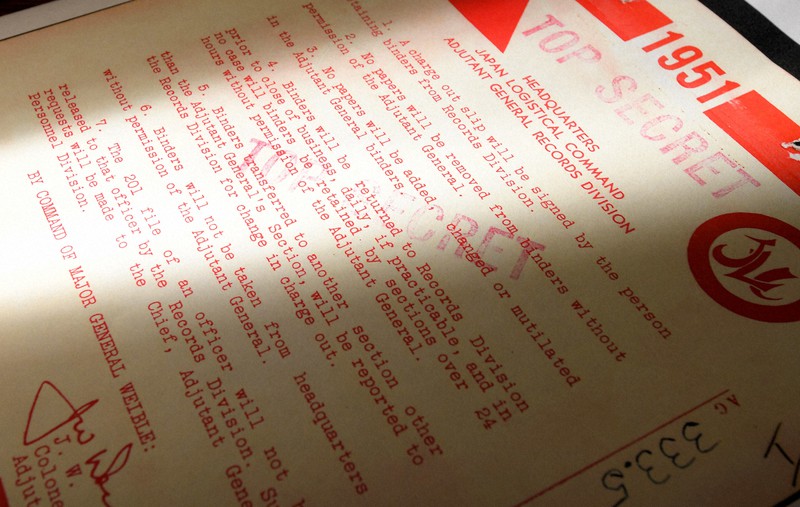 1951
TOP SECRET
HEADQUARTERS
JAPAN LOGISTICAL COMMAND
ADJUTANT GENERAL RECORDS DIVISION
1. A charge out slip will be signed by the person
taining binders from Records Division.
2. No papers will be removed from binders without
permission of the Adjutant General.
3. No papers will be added, changed or mutilated
in the Adjutant General binders.
4. Binders will be returned to Records Division
prior to close of business, daily, if practicable, and in
no case will binders be retained by sections over 24
hours without permission of the Adjutant General.
TOP SECRET
5. Binders transferred to another section other
than the Adjutant General's Section, will be reported to
the Records Division for change in charge out.
6. Binders will not be taken from headquarters
without permission of the Adjutant General.
7. The 201 file of an officer will not
released to that officer by the Records Division. Su
requests will be made to the Chief, Adjutant Gene
Personnel Division.
BY COMMAND OF MAJOR GENERAL WEIBLE:
J. W.
Colone
Adjut
AG
333.5